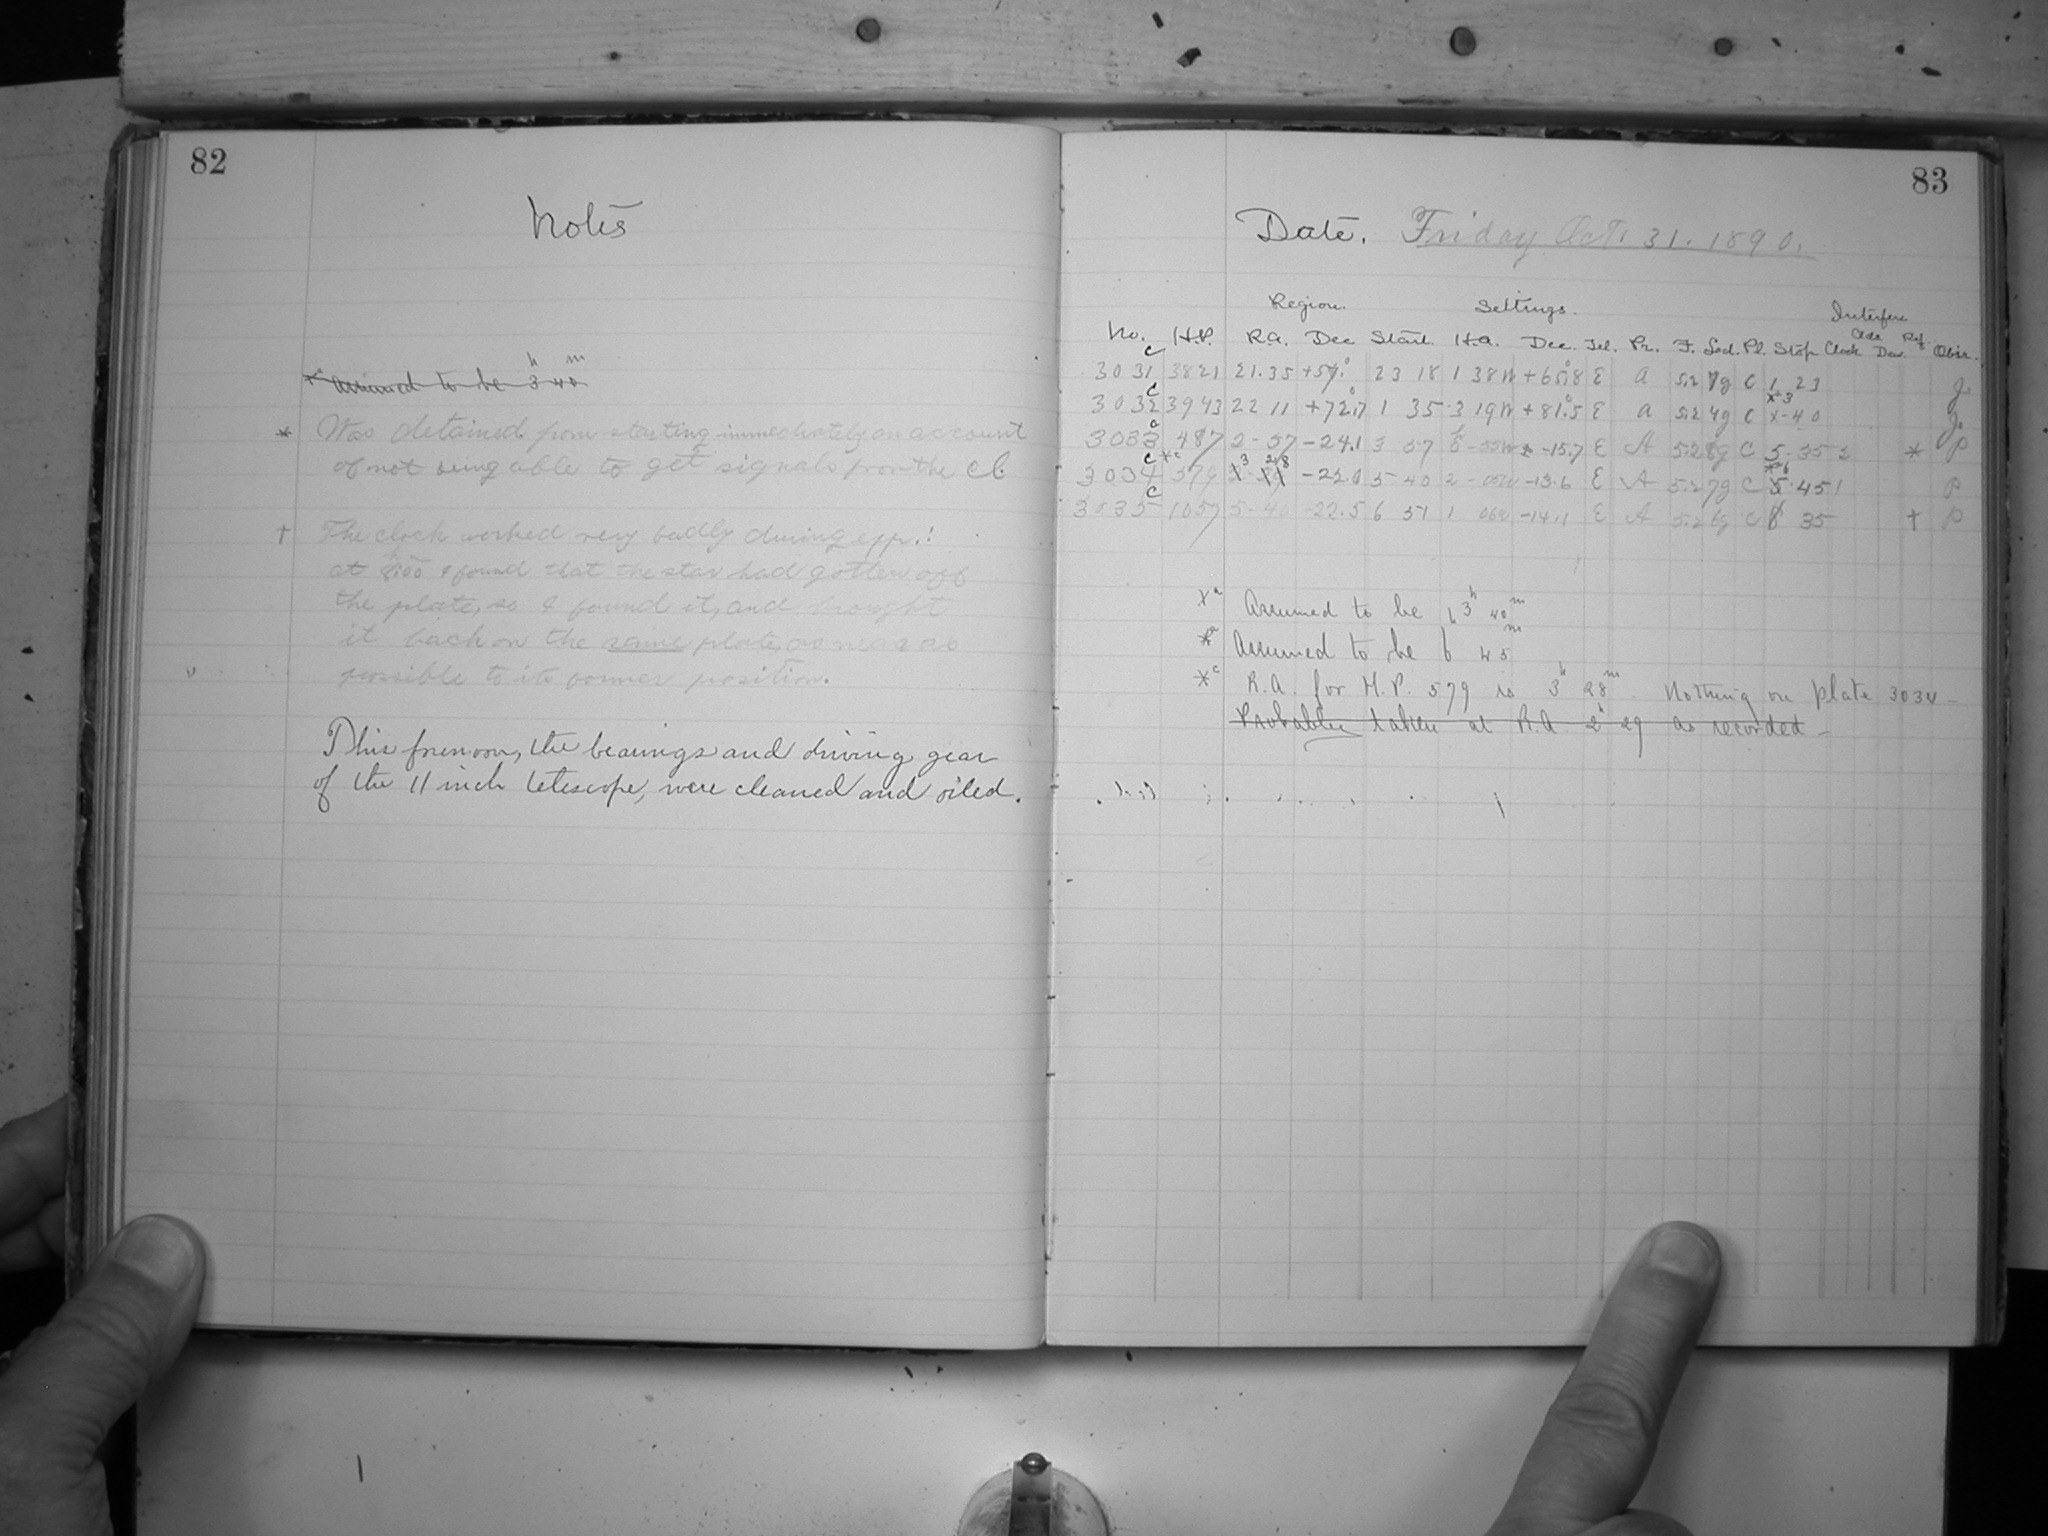 82
Notes
* assumed to be 3h 40m
* Was detained from starting immediately on account
of not being able to get signals from the cl.
† The clock worked very badly during exp.:
at I found that the star had gotten off
the plate, so I found it, and brought
it back on the same plate, as near as
possible to its former position.
This forenoon, the bearings and driving gear
of the 11 inch telescope, were cleaned and oiled.
83
Date. Friday Oct. 31. 1890.
Region. Settings. Interfere
No. H.P. R.A. Dec Start. H.a. Dec. Tel. Pr. F. Sed. Pl. Stop Clock Clds Dew. Ref. Obsr.
3031 c 3821 21.35 23 18 1 38W +65.8 E A 5.2 C 1 23 J.
3032 c 3943 22 11 +72.7 1 35 3 19W +81.5 E A 5.2 C x-40 J.
3033 c 487 2-57 -24.1 3 57 -15.7 E A 5.2 C 5-35 2 * P
3034 c *c 579 3 28 -22.0 5 40 2 -13.6 E A 5.2 7g C 5.45 1 P
3035 c 1057 5-40 -22.5 6 51 1 06W -14.1 E A 5.2 C 35 † P
*a Assumed to be 3h 40m
*a Assumed to be 6h 45m
*c R.A. for H.P. 579 is 3h 28m. Nothing on plate 3034 -
Probably taken at R.A. 2h 29 as recorded -